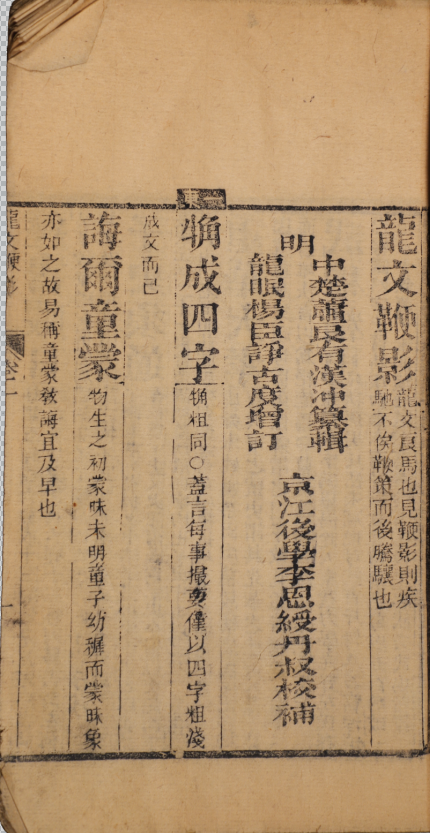 龍文鞭影 龍文良馬也見鞭影則疾
馳不俟鞭策而後騰驤也
中楚蕭良有漢沖纂輯
明
龍眠楊臣諍古度增訂
京江後學李恩綬丹叔校補
東
觕成四字 觕粗同○蓋言每事撮要僅以四字粗淺
成文而已
誨爾童蒙 物生之初蒙昧未明童子幼穉而蒙昧象
亦如之故易稱童蒙敎誨宜及早也
龍文鞭影
卷一
一